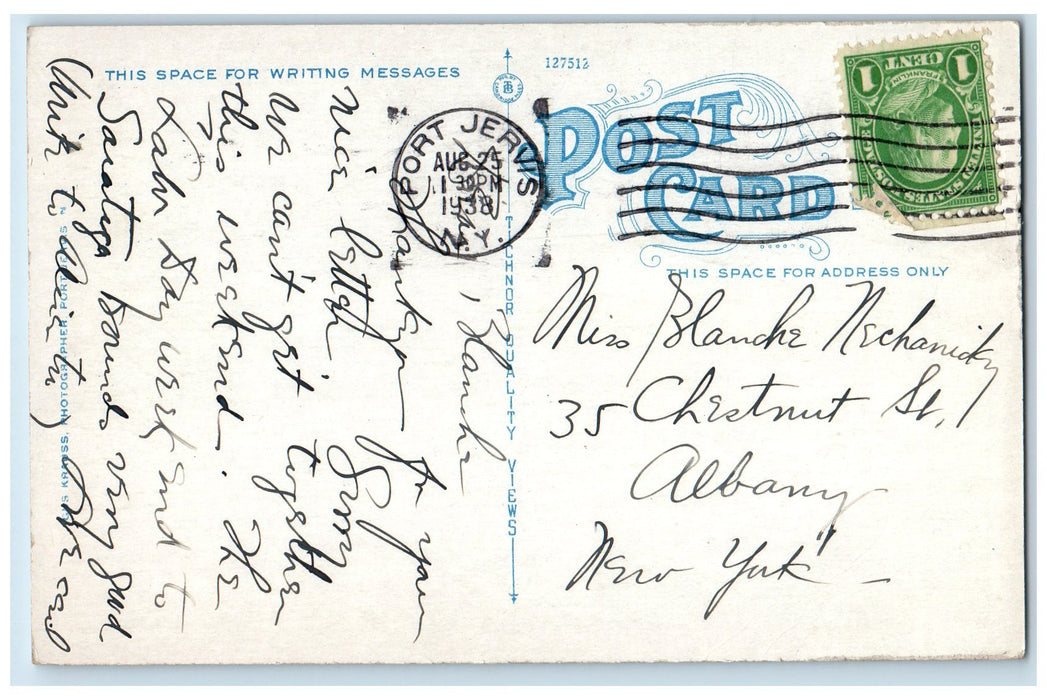 THIS SPACE FOR WRITING MESSAGES
127512
POST CARD
PORT JERVIS
AUG 25
1 30 PM
1938
N.Y.
1 CENT 1
FRANKLIN
THIS SPACE FOR ADDRESS ONLY
TICHNOR QUALITY VIEWS
KRAUSS, PHOTOGRAPHER, PORT JERVIS, N.
Blanche,
Thank you for your
nice letter. Sorry
we can't get together
this weekend. The
Labor Day week end to
Saratoga sounds very good
Write to Alice to
Miss Blanche Nechanicky
35 Chestnut St.,
Albany
New York